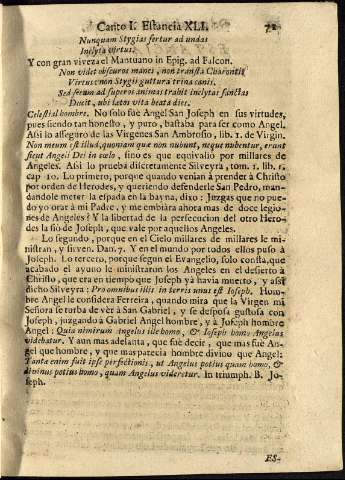 Canto I. Estancia XLI. 72
Nunquam Stygias fertur ad undas
Inclyta virtus.
Y con gran viveza el Mantuano in Epig. ad Falcon.
Non videt obscuros manes, non transta Charontis
Virtus: non Stygij guttura trina canis.
Sed secum ad superos animas trahit inclytas sanctas
Ducit, ubi latos vita beata dies.
Celestial hombre. No solo fuè Angel San Joseph en sus virtudes,
pues siendo tan honesto, y puro, bastaba para ser como Angel.
Assi lo asseguro de las Virgenes San Ambrosio, lib. 1. de Virgin.
Non meum est illud, quoniam quæ non nubunt, neque nubentur, erunt
sicut Angeli Dei in cœlo, sino es que equivalio por millares de
Angeles. Assi lo prueba discretamente Silveyra, tom. 1. lib. 1.
cap 10. Lo primero, porque quando venian à prender à Christo
por orden de Herodes, y queriendo defenderle San Pedro, man-
dandole meter la espada en la bayna, dixo: Juzgas que no pue-
do yo orar à mi Padre, y me embiàra ahora mas de doce legio-
nes de Angeles? Y la libertad de la persecucion del otro Hero-
des la fio de Joseph, que vale por aquellos Angeles.
Lo segundo, porque en el Cielo millares de millares le mi-
nistran, y sirven. Dan. 7. Y en el mundo por todos ellos puso à
Joseph. Lo tercero, porque segun el Evangelio, solo consta, que
acabado el ayuno le ministraron los Angeles en el desierto à
Christo, que era en tiempo que Joseph yà havia muerto, y assi
dicho Silveyra: Pro omnibus illis in terris unus est Joseph. Hom-
bre Angel le considera Ferreira, quando mira que la Virgen mi
Señora se turba de vèr à San Gabriel, y se desposa gustosa con
Joseph, juzgando à Gabriel Angel hombre, y à Joseph hombre
Angel: Quia nimirum Angelus ille homo, & Joseph homo Angelus
videbatur. Y aun mas adelanta, que fuè decir, que mas fuè An-
gel que hombre, y que mas parecia hombre divino que Angel:
Tanta enim fuit ipse perfectionis, ut Angelus potius quam homo, &
divinus potius homo, quam Angelus videretur. In triumph. B. Jo-
seph.
ES-